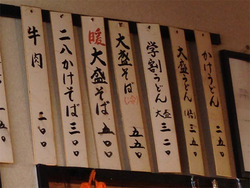 かけうどん 二五〇
大盛うどん 三五〇
学割うどん 大盛 三二〇
大盛そば 五五〇
暖大盛そば 五〇〇
二八かけそば 三〇〇
牛肉 二〇〇